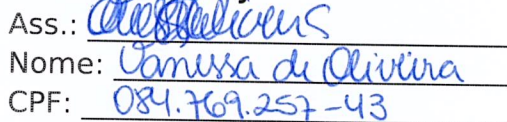 Ass.:
Nome: Vanessa de Oliveira
CPF: 084.769.257-43